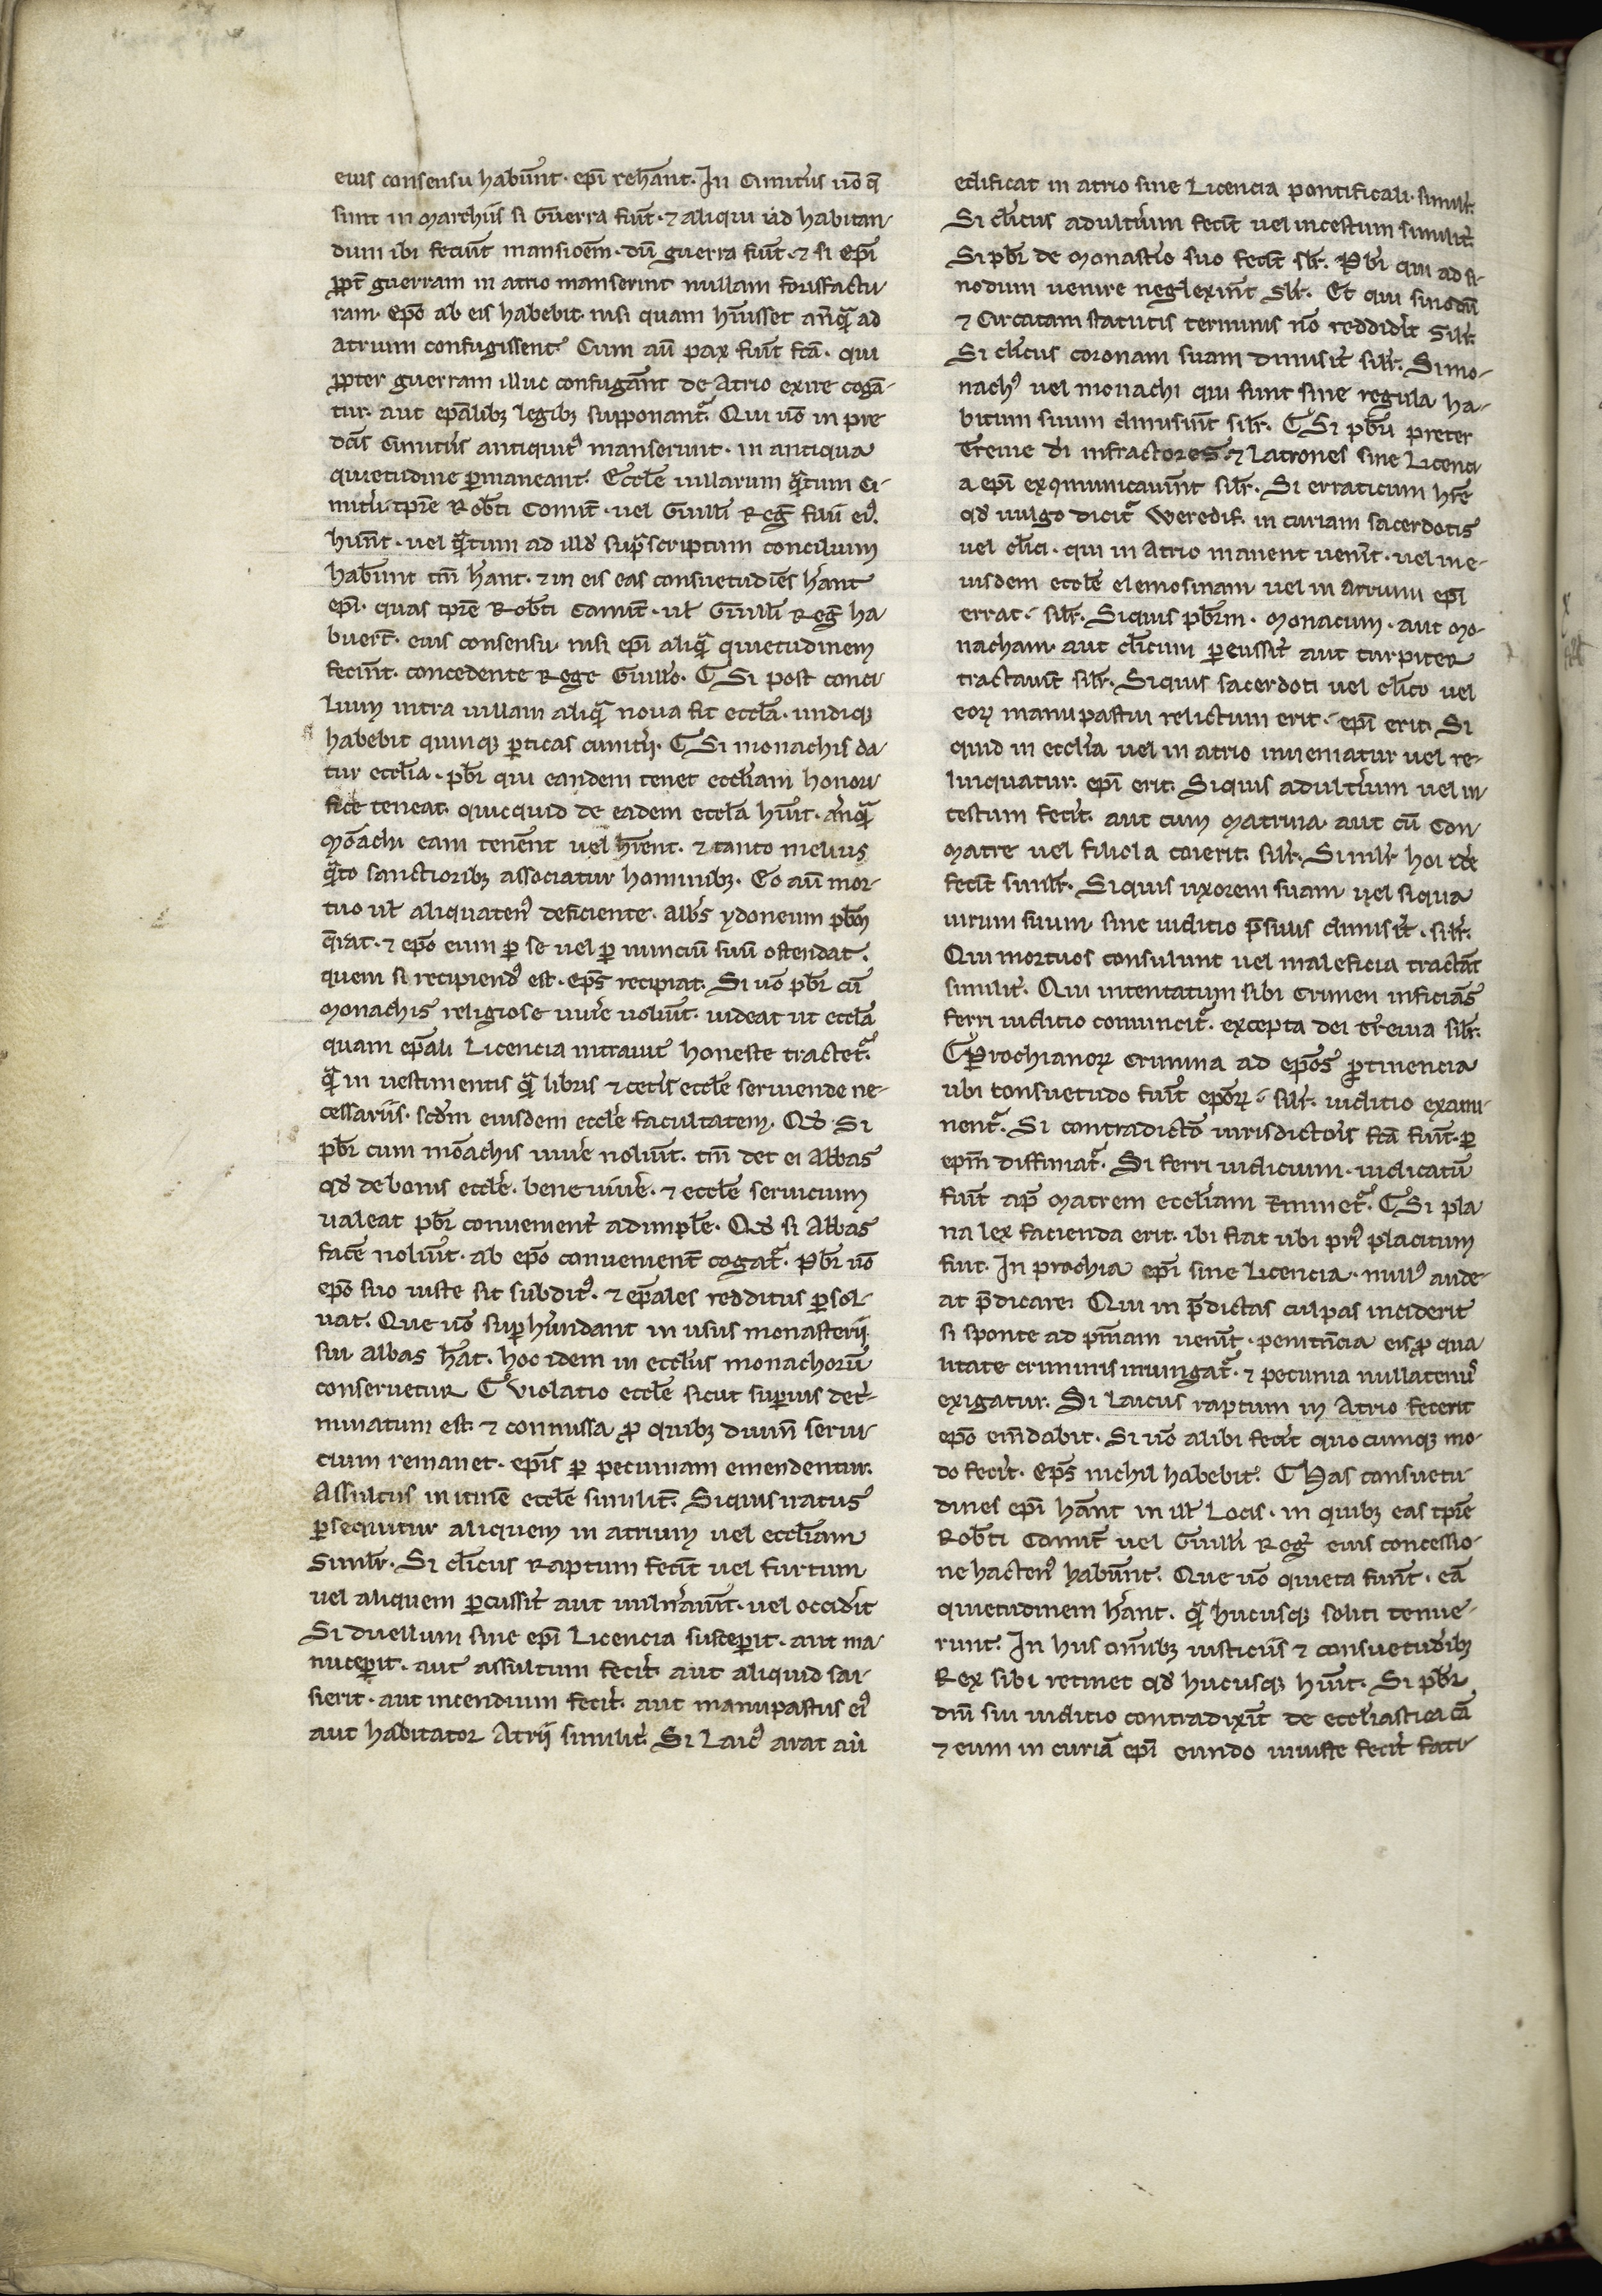 eius consensu habuͬnt · ep̄i reh̄ant. In Cimitͥis ũo q̄
sunt in marchiis si Guerra fuͥit · ⁊ aliqui ad habitan-
dum ibi fecͥint mansioēm · dū guerra fuͥit · ⁊ si ep̄i
ꝓpt̄ guerram in atrio manserint nullam forisfactu
ram · ep̄o ab eis habebit · nisi quam hͣuisset anͤqͣ ad
atrium confugissent. Cum aū pax fuͥit fcā · qui
ꝓpter guerram illuc confugeͬnt de Atrio exire cogā-
tur · aut ep̄alibꝫ legibꝫ supponantͬ. Qui ũo in pre
dc̄is Cimitͥis antiquitꝰ manserunt · in antiqua
quietudine ꝑmaneant. Eccl̄e uillarum qͣtum ci-
mitͥii · tp̄re Rob̄ti Comit̄ · uel Guill̄i Reḡ fuīt eiꝰ.
huͬnt · uel qͣtum ad illd̄ supͣscriptum concilium
habͬunt tm̄ h̄ant · ⁊ in eis eas consuetudīes h̄ant
ep̄i · quas tp̄re Rob̄ti Comit̄ · ul̄ Guill̄i Reḡ ha
buert̄ · eius consensu nisi ep̄i aliqͣ quietudinem
fecͥint · concedente Rege Guill̄o. ⸿ Si post conci
lium intra uillam aliqͣ noua fit eccl̄a · undiqꝫ
habebit quinqꝫ ꝑticas cimitͥii · ⸿ Si monachis da-
tur eccl̄ia · pb̄r qui eandem tenet eccl̄iam honori
fice teneat · quicquid de eadem eccl̄a hͣuit · anͤqͣ
mōachi eam tenͤent uel hͬent · ⁊ tanto melius
qͣto sanctioribꝫ associatur hominibꝫ · Eo aū mor-
tuo ul̄ aliquatenꝰ deficiente · abb̄s ydoneum pb̄rm
qͬat · ⁊ ep̄o eum ꝑ se uel ꝑ nunciū suū ostendat ·
quem si recipiendꝰ est · ep̄s recipiat · Si ũo pb̄r cū
monachis religiose uiuͤe uolͣit · uideat ut eccl̄a
quam ep̄ali Licencia intrauit honeste tractetͬ.
qͣ in uestimentis qͣ libris ⁊ cetͥis eccl̄e seruiende ne-
cessariis · scd̄m eiusdem eccl̄e facultatem · Qd̄ Si
pb̄r cum mōachis uiuͤe nolͣit · tm̄ det ei Abbas
qd̄ de bonis eccl̄e · bene uiuͤe · ⁊ eccl̄e seruicium
ualeat pb̄r conuenient̄ adimpl̄e · Qd̄ si Abbas
facͤe nolͣit · ab ep̄o conuenient̄ cogatͬ. Pb̄r ũo
ep̄o suo iuste sit subditꝰ · ⁊ ep̄ales redditus ꝑsol-
uat · Que ũo supͬhabundant in usus monasterii
sui abbas h̄at · hoc idem in eccl̄iis monachorū
conseruetur ⸿ Violatio eccl̄e sicut suꝑius det̄-
minatum est · ⁊ commissa ꝓ quibꝫ diuin̄ serui-
cium remanet · ep̄is ꝑ pecuniam emendentur.
Assultus in itinͤe eccl̄e similit̄. Siquis iratus
ꝑsequitur aliquem in atrium uel eccl̄iam
Simil̄r · Si cl̄icus Raptum fecͥit uel furtum
uel aliquem ꝑcussͥit aut uulnͤauͥit · uel occidͥit
Si duellum sine ep̄i Licencia susceꝑit · aut ma-
nuceꝑit · aut assultum fecͥit · aut aliquid sai-
sierit · aut incendium fecͥit · aut manupastus eiꝰ
aut habitator Atrii similit̄ Si Laicꝰ arat aū
edificat in atrio sine Licencia pontificali · simil̄r
Si cl̄icus adultͥium fecͥit uel incestum similit̄
Si pb̄r de monastͥio suo fecͥit sl̄r · Pb̄ri qui ad si-
nodum uenire neglexͥint Sl̄r · Et qui sinodū
⁊ Circatam statutis terminis nō reddidͥit Sil̄r
Si cl̄icus coronam suam dimisͥit sil̄r · Si mo-
nachꝰ uel monachi qui sunt sine regula ha-
bitum suum dimisͥint sil̄r · ⸿ Si pb̄ri preter
Treuie dī infractores · ⁊ Latrones sine Licenci
a ep̄i exꝯmunicauͥint sil̄r · Si erraticum h̄re
qd̄ uulgo dicitͬ Weredif · in curiam sacerdotis
uel cl̄ici · qui in Atrio manent uenͥit · uel in e-
iusdem eccl̄e elemosinam · uel in Atrium ep̄i
errat · sil̄r · Siquis pb̄rm · Monacum · aut mo-
nacham · aut cl̄icum ꝑcussͥit aut turpiter
tractauͥit sil̄r · Siquis sacerdoti uel cl̄ico uel
eoꝝ manupastui relictum erit · ep̄i erit · Si
quid in eccl̄ia uel in atrio inueniatur uel re-
linquatur · ep̄i erit · Siquis adultͥium uel in
cestum fecͥit · aut cum matrina aut cū Con
matre uel filiola coierit · sil̄r · Simil̄r hoi id̄e
fecͥit simil̄r · Siquis uxorem suam uel siqua
uirum suum · sine iudicio p̄sulis dimisͥit · sil̄r ·
Qui mortuos consulunt uel maleficia tractāt
similit̄ · Qui intentatum sibi crimen inficiās
ferri iudicio conuincitͬ · excepta dei Treuia sil̄r ·
⸿ Parochianoꝝ crimina ad ep̄os ꝑtinencia
ubi consuetudo fuͥit ep̄oꝝ · sil̄r · iudicio exami
nentͬ · Si contradictō iurisdictōis fcā fuͥit · ꝑ
ep̄m diffiniatͬ · Si ferri iudicium · iudicatū
fuͥit ap̄ matrem eccl̄iam tminetͬ · ⸿ Si pla
na lex facienda erit · ibi fiat ubi priꝰ placitum
fuit · In prochia ep̄i sine Licencia · nullꝰ aude-
at p̄dicare · Qui in p̄dictas culpas inciderit
si sponte ad pn̄iam uenͥit · penitn̄cia eis ꝓ qua
litate criminis iniungatͬ · ⁊ pecunia nullatenꝰ
exigatur · Si Laicus raptum in Atrio fecerit
ep̄o em̄dabit · Si ũo alibi fecͥit quocumqꝫ mo-
do fecͥit · Ep̄s nichil habebit · ⸿ Has consuetu
dines ep̄i h̄ant in ill̄ Locis · in quibꝫ eas tp̄re
Rob̄ti Comit̄ uel Guill̄i Reḡ eius concessio-
ne hactenꝰ habuͬnt · Que ũo quieta fuͬnt · eā
quietudinem h̄ant · qͣ hucusqꝫ soliti tenue-
runt · In hiis om̄ibꝫ iusticiis ⁊ consuetudibꝫ
Rex sibi retinet qd̄ hucusqꝫ hͣuit · Si pb̄r
dn̄i sui iudicio contradixͥit de eccl̄iastica cā
⁊ eum in curiā ep̄i eundo iniuste fecͥit fati-